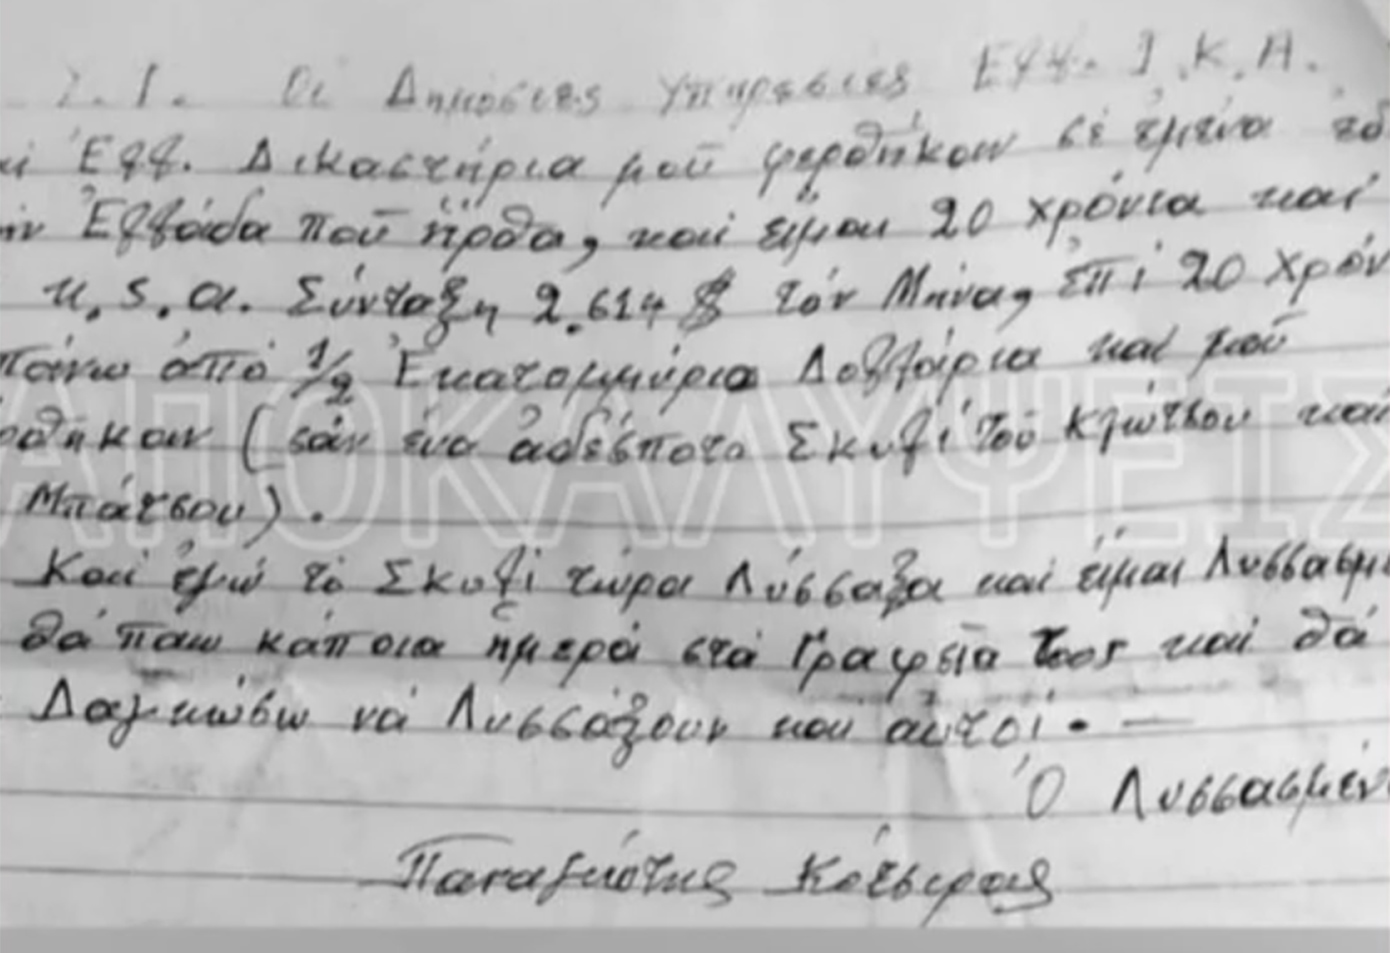 Σ.Γ. Οἱ Δημόσιες Υπηρεσίες Ελλ. Ι.Κ.Α.
Ἑλλ. Δικαστήρια μοῦ φερθήκαν σέ ἐμένα
Ἑλλάδα ποῦ ἦρθα, καί εἶμαι 20 χρόνια καί
U.S.A. Σύνταξη 2.614 $ τόν Μήνα, ἐπί 20 χρόν
Πάνω ἀπό 1/2 Ἑκατομμύρια Δολλάρια καί μοῦ
ρθηκαν (σάν ἕνα ἀδέσποτο Σκυλί τοῦ κλώτσου καί
Μπάτσου).
Καί ἐγώ τό Σκυλί τώρα Λύσσαξα καί εἶμαι Λυσσασμέ
θά πάω κάποια ἡμερά στά Γραφεῖα τους καί θά
Δαγκώσω νά Λυσσάξουν και αὐτοί. —
Ὁ Λυσσασμέν
Παναγιώτης Κότσιρας
ΑΠΟΚΑΛΥΨΕΙΣ